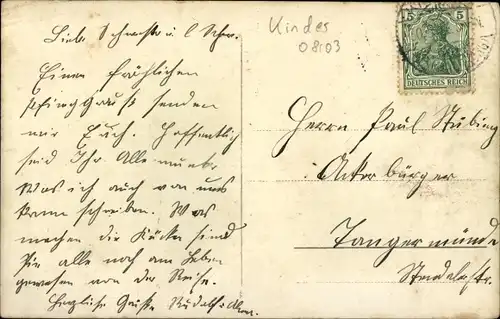 Liebe Schwester u. l Schw.
Einen fröhlichen
Pfingstgruß senden
wir Euch. Hoffentlich
seid Ihr Alle munter
Was ich auch von uns
kann schreiben. Was
machen die Kücken sind
Sie alle noch am Leben
gewesen von der Reise.
Herzliche Grüße Rudolf u.
Kindes
08103
5 5
DEUTSCHES REICH
Herrn Paul Stübing
Ackerbürger
Tangermünde
Stendalerstr.